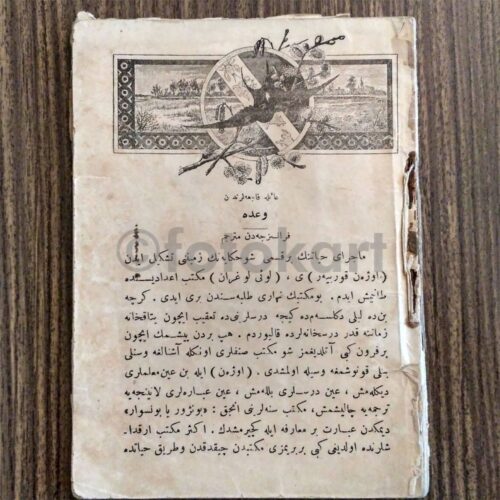 عائله فاجعه‌لرندن
وعده
فرانسزجه‌دن مترجم
ماجرای حیاتنك برقسمی شوحكایه‌نك زمینی تشكیل ایدن
(اوژه‌ن قوربیه‌ر) ی، (لوئی لو غران) مكتب اعدادیسنده
طانیمش ایدم. بومكتبك نهاری طلبه‌سندن بری ایدی. كرچه
بن‌ده لیلی دكلسه‌م‌ده كیجه درسلرنی تعقیب ایچون یتاقخانه
زماننه قدر درسخانه‌لرده قالیوردم. هپ بردن ییشمك ایچون
برفرون كبی آتلدیغمز شو مكتب صنفلری اونكله آشنالغه وسنلی
بنلی قونوشمغه وسیله اولمشدی. (اوژه‌ن) ایله بن عین معلملری
دیكله‌مش، عین درسلری بلله‌مش، عین عباره‌لری لاتینجه‌یه
ترجمه‌یه چالیشمش، مكتب سنه‌لرنی آنجق: «بونژور یا بونسوار»
دیمكدن عبارت بر معارفه ایله كچیرمشدك. اكثر مكتب ارقدا-
شلرنده اولدیغی كبی بربریمزی مكتبدن چیقدقدن وطریق حیاتده
©fotokart